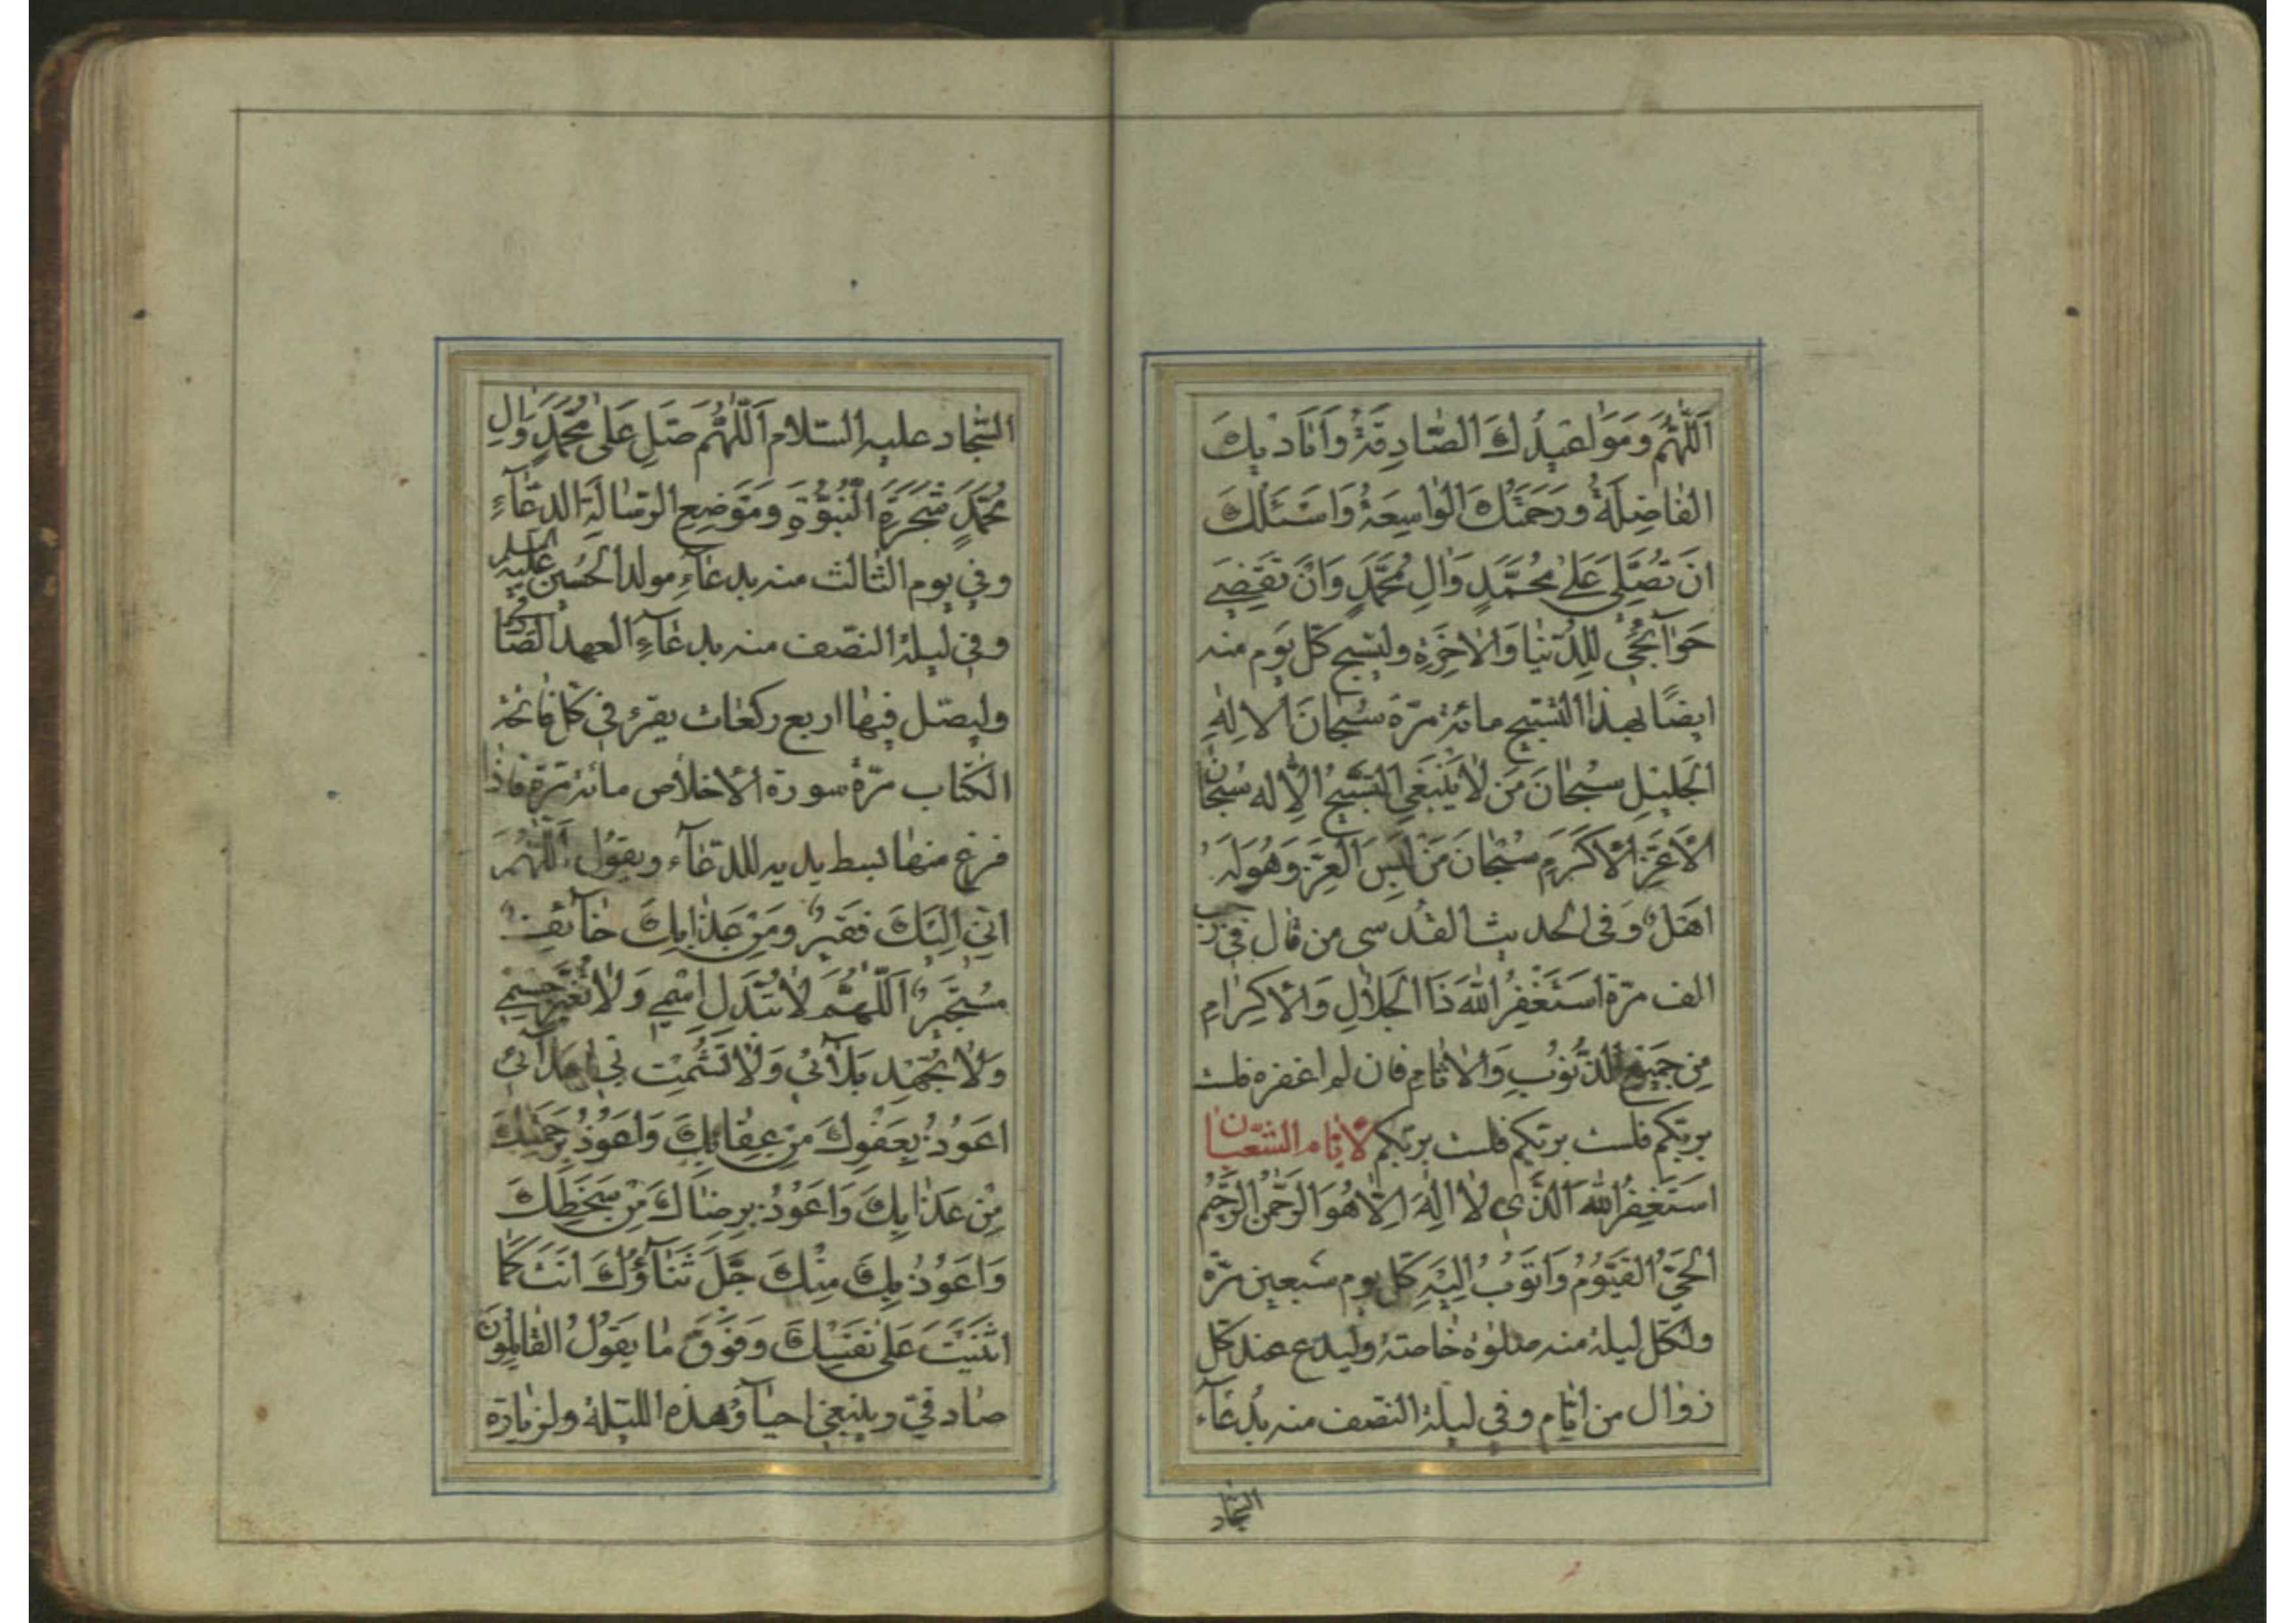 اَللّهُمَّ وَمَوَاعيدُكَ الصّادِقَةُ وَاَياديكَ
الفاضِلَةُ وَرَحْمَتُكَ الواسِعَةُ وَاَسْئَلُكَ
اَنْ تُصَلِّىَ عَلى مُحَمَّدٍ وَالِ مُحَمَّدٍ وَاَنْ تَقْضِيَ
حَوآئِجي لِلدُّنْيا وَالاخِرَةِ وليسبح كلّ يوم منه
ايضًا بهذا التّسبيح مائة مرّة سُبْحانَ الالِهِ
الجَليلِ سُبْحانَ مَنْ لا يَنْبَغِي التَّسْبيحُ اِلاّ له سُبْحانَ
الاَعَزِّ الاَكْرَمِ سُبْحانَ مَنْ لَبِسَ الْعِزَّ وَهُوَ لَهُ
اَهْلٌ وفى الحديث القدسى من قال فى رجب
الف مرّة اَسْتَغْفِرُ اللهَ ذَا الجَلالِ وَالاِكْرامِ
مِنْ جَميعِ الذُّنُوبِ وَالاثامِ فان لم اغفره فلست
بربّكم فلست بربّكم فلست بربّكم لايّام الشّعبان
اَسْتَغْفِرُ اللهَ الَّذي لا اِلهَ اِلاّ هُوَ الرَّحْمنُ الرَّحيمُ
الحَيُّ القَيُّومُ وَاَتُوبُ اِلَيْهِ كلّ يوم سبعين مرّة
ولكلّ ليلة منه صلوة خاصّة وليدع عند كلّ
زوال من ايّام وفي ليلة النّصف منه بدُعآء
السّجاد
السّجاد عليه السّلام اَللّهُمَّ صَلِّ عَلى مُحَمَّدٍ وَالِ
مُحَمَّدٍ شَجَرَةِ النُّبُوَّةِ وَمَوْضِعِ الرِّسالَةِ الدّعآءِ
وفي يوم الثّالث منه بدعآءِ مولد الحسين عليه السلم
وفي ليلة النّصف منه بدعآءِ العهد الصّا
وليصلّ فيها اربع ركعات يقرء في كلّ فاتحة
الكتاب مرّة سورة الاخلاص مائة مرّة فاذا
فرغ منها بسط يديه للدّعآء ويقول اَللّهُمَّ
اِنّي اِلَيْكَ فَقيرٌ وَمِنْ عَذابِكَ خآئِفٌ
مُسْتَجيرٌ اَللّهُمَّ لا تُبَدِّلْ اِسْمي وَلا تُغَيِّرْ جِسْمي
وَلا تُجْهِدْ بَلآئي وَلا تُشْمِتْ بي اَعْدآئي
اَعُوذُ بِعَفْوِكَ مِنْ عِقابِكَ وَاَعُوذُ بِرَحْمَتِكَ
مِنْ عَذابِكَ وَاَعُوذُ بِرِضاكَ مِنْ سَخَطِكَ
وَاَعُوذُ بِكَ مِنْكَ جَلَّ ثَنآؤُكَ اَنْتَ كَما
اَثْنَيْتَ عَلى نَفْسِكَ وَفَوْقَ ما يَقُولُ القائِلُونَ
صادقيّ وينبغي احيآؤ هذه اللّيلة ولزيارة